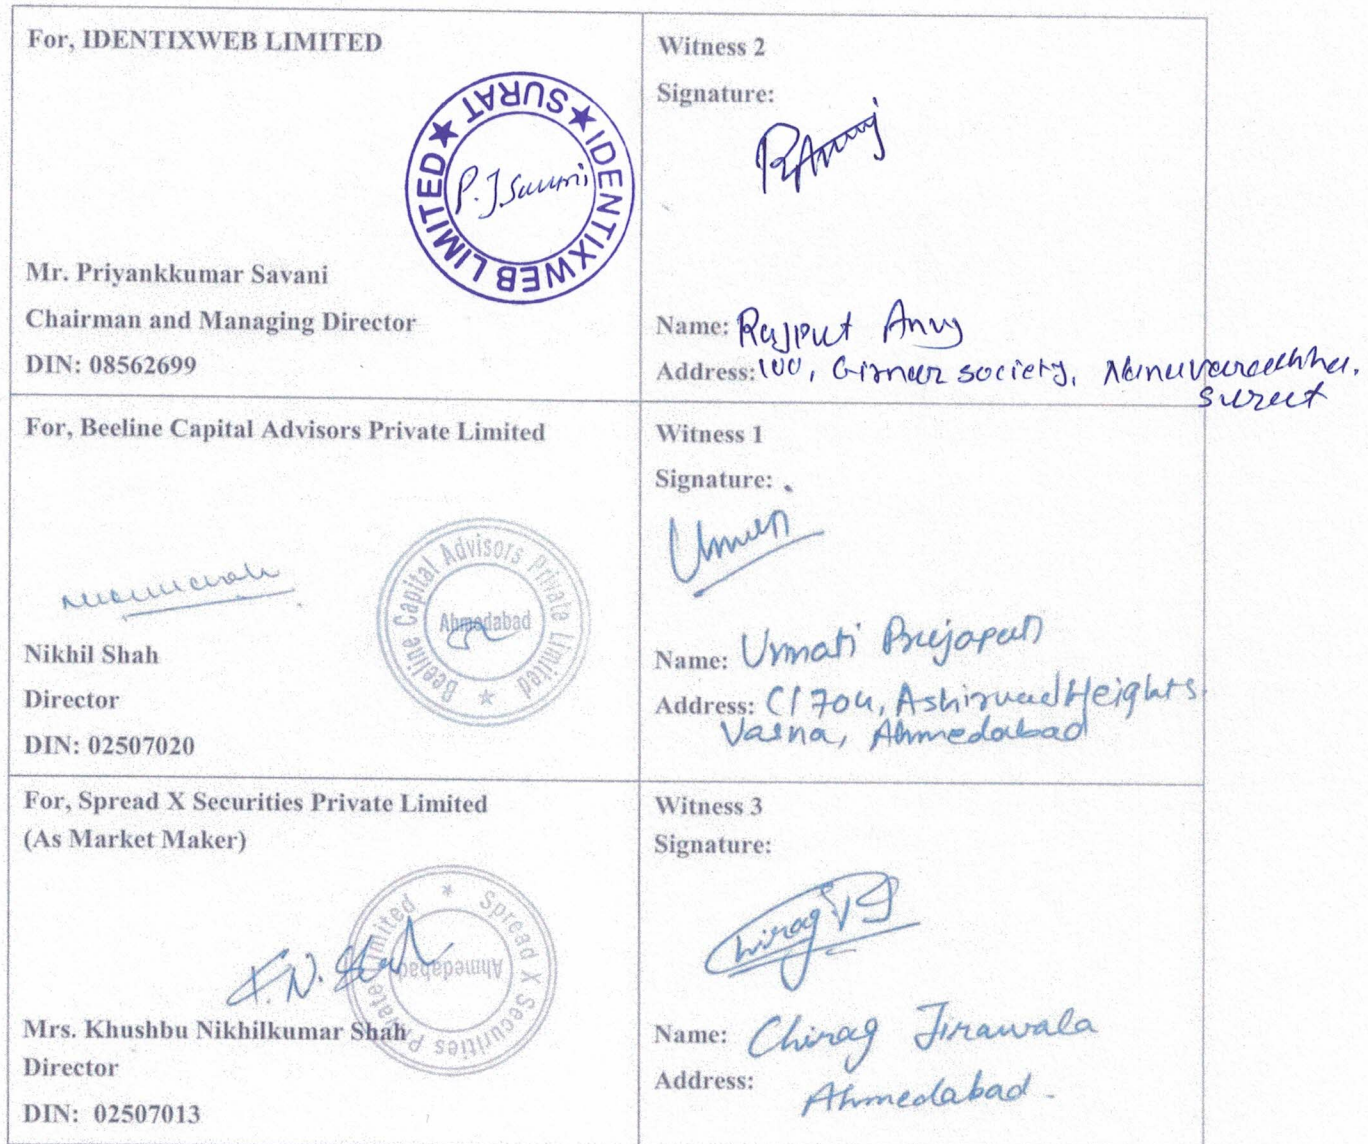 For, IDENTIXWEB LIMITED
IDENTIXWEB LIMITED ★ SURAT ★
P. J. Savani
Mr. Priyankkumar Savani
Chairman and Managing Director
DIN: 08562699
Witness 2
Signature:
RAnuj
Name: Rajput Anuj
Address: 100, Girnar society, Nanuvarachha,
Surat
For, Beeline Capital Advisors Private Limited
Beeline Capital Advisors Private Limited ★
Ahmedabad
Nikhil Shah
Director
DIN: 02507020
Witness 1
Signature:
Name: Urmati
Address: C/704, Ashirvad Heights
Vasna, Ahmedabad
For, Spread X Securities Private Limited
(As Market Maker)
Spread X Securities Private Limited ★
Ahmedabad
K.N. Shah
Mrs. Khushbu Nikhilkumar Shah
Director
DIN: 02507013
Witness 3
Signature:
Chirag
Name: Chirag Jirawala
Address:
Ahmedabad.